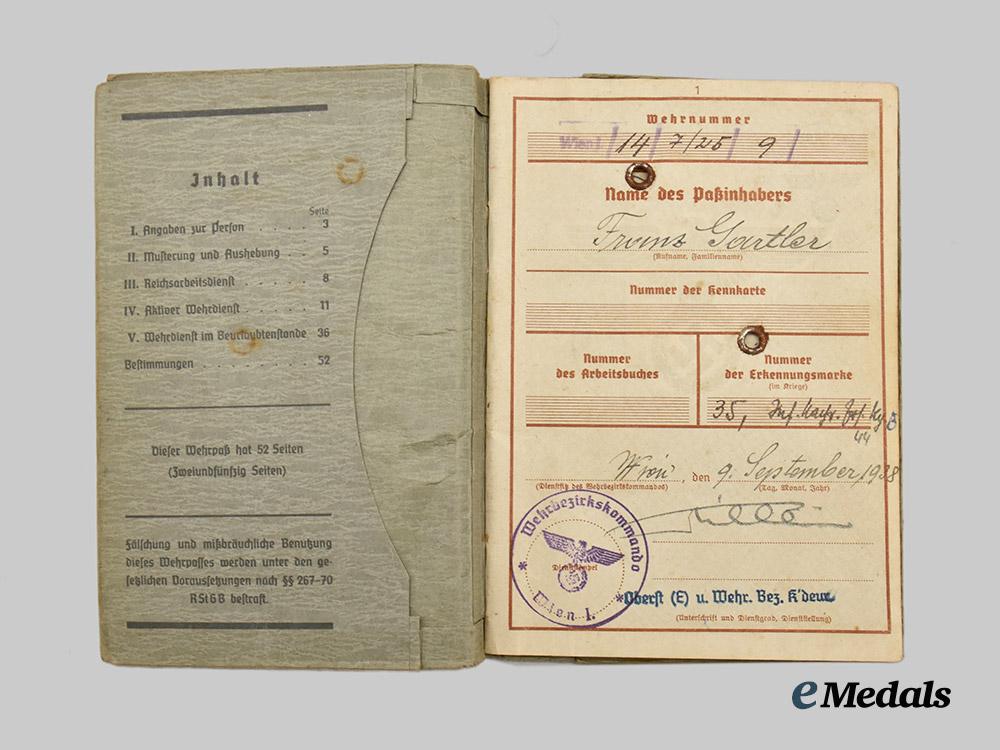 Inhalt
Seite
I. Angaben zur Person . . . . . 3
II. Musterung und Aushebung . . 5
III. Reichsarbeitsdienst . . . . . . 8
IV. Aktiver Wehrdienst . . . . . 11
V. Wehrdienst im Beurlaubtenstande 36
Bestimmungen . . . . . . . . 52
Dieser Wehrpaß hat 52 Seiten
(Zweiundfünfzig Seiten)
Fälschung und mißbräuchliche Benutzung
dieses Wehrpasses werden unter den ge-
setzlichen Voraussetzungen nach §§ 267-70
RStGB bestraft.
1
Wehrnummer
Wien I 14 7/25 9
Name des Paßinhabers
Franz Gartler
(Rufname, Familienname)
Nummer der Kennkarte
Nummer
des Arbeitsbuches
Nummer
der Erkennungsmarke
(im Kriege)
35, Inf. Nachr.
44
Wien, den 9. September 1938
(Dienstsitz des Wehrbezirkskommandos) (Tag, Monat, Jahr)
* Wehrbezirkskommando *
Wien I.
Dienststempel
Oberst (E) u. Wehr. Bez. K'deur
(Unterschrift und Dienstgrad, Dienststellung)
eMedals